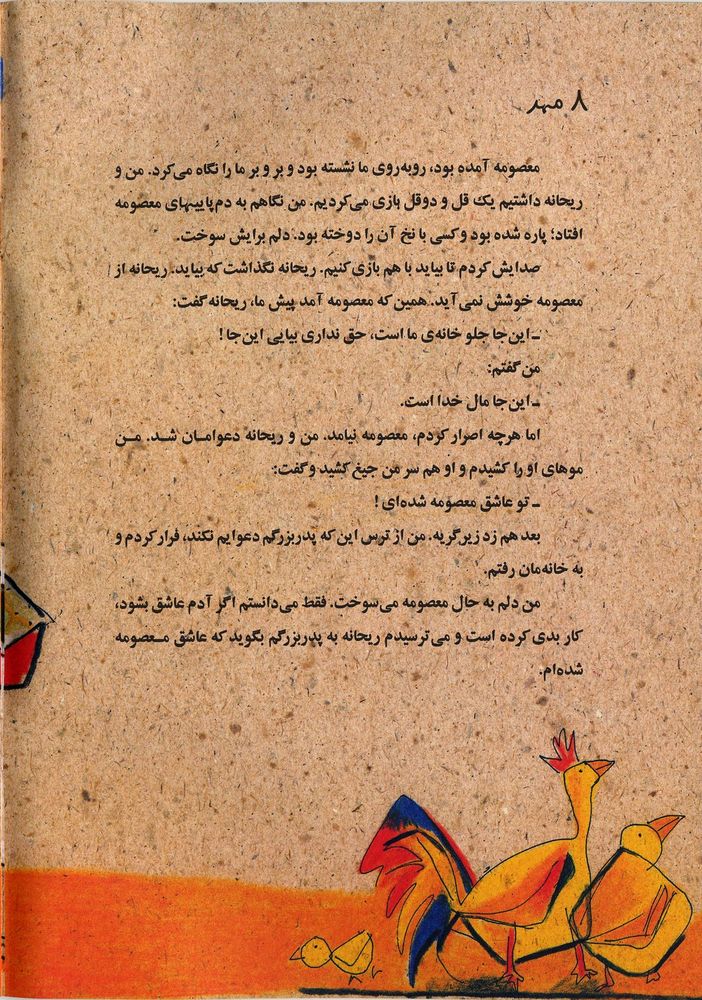 ۸ مهر
معصومه آمده بود، روبه‌روی ما نشسته بود و بر و بر ما را نگاه می‌کرد. من و
ریحانه داشتیم یک قل و دوقل بازی می‌کردیم. من نگاهم به دم‌پاییهای معصومه
افتاد؛ پاره شده بود و کسی با نخ آن را دوخته بود. دلم برایش سوخت.
صدایش کردم تا بیاید با هم بازی کنیم. ریحانه نگذاشت که بیاید. ریحانه از
معصومه خوشش نمی‌آید. همین که معصومه آمد پیش ما، ریحانه گفت:
ـ این‌جا جلو خانه‌ی ما است، حق نداری بیایی این‌جا!
من گفتم:
ـ این‌جا مال خدا است.
اما هرچه اصرار کردم، معصومه نیامد. من و ریحانه دعوامان شد. من
موهای او را کشیدم و او هم سر من جیغ کشید و گفت:
ـ تو عاشق معصومه شده‌ای!
بعد هم زد زیر گریه. من از ترس این که پدربزرگم دعوایم نکند، فرار کردم و
به خانه‌مان رفتم.
من دلم به حال معصومه می‌سوخت. فقط می‌دانستم اگر آدم عاشق بشود،
کار بدی کرده است و می‌ترسیدم ریحانه به پدربزرگم بگوید که عاشق معصومه
شده‌ام.